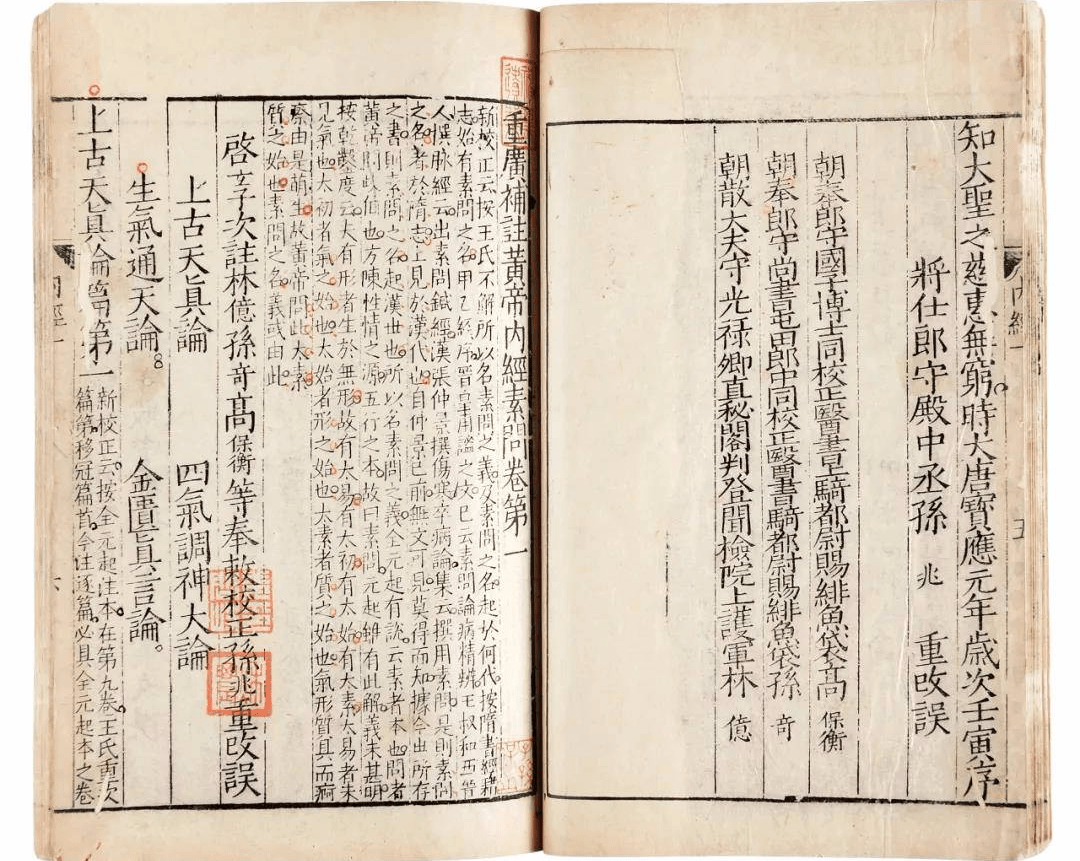 知大聖之慈惠無窮時大唐寶應元年歲次壬寅序
將仕郎守殿中丞孫 兆 重改誤
朝奉郎守國子博士同校正醫書上騎都尉賜緋魚袋高 保衡
朝奉郎守尚書屯田郎中同校正醫書騎都尉賜緋魚袋孫 奇
朝散大夫守光祿卿直秘閣判登聞檢院上護軍林 億
重廣補註黃帝內經素問卷第一
新校正云按王氏不解所以名素問之義及素問之名起於何代按隋書經籍
志始有素問之名甲乙經序晉皇甫謐之文已云素問論病精辨王叔和西晉
人撰脉經云出素問鍼經漢張仲景撰傷寒卒病論集云撰用素問是則素問
之名著於隋志上見於漢代也自仲景已前無文可見莫得而知據今世所存
之書則素問之名起漢世也所以名素問之義全元起有說云素者本也問者
黃帝問岐伯也方陳性情之源五行之本故曰素問元起雖有此解義未甚明
按乾鑿度云夫有形者生於無形故有太易有太初有太始有太素太易者未
見氣也太初者氣之始也太始者形之始也太素者質之始也氣形質具而痾
瘵由是萌生故黃帝問此太素
質之始也素問之名義或由此
啓玄子次註林億孫奇高保衡等奉敕校正孫兆重改誤
上古天真論 四氣調神大論
生氣通天論 金匱真言論
上古天真論篇第一
新校正云按全元起注本在第九卷王氏重次
篇第移冠篇首今注逐篇必具全元起本之卷
內經一
五
內經一
六